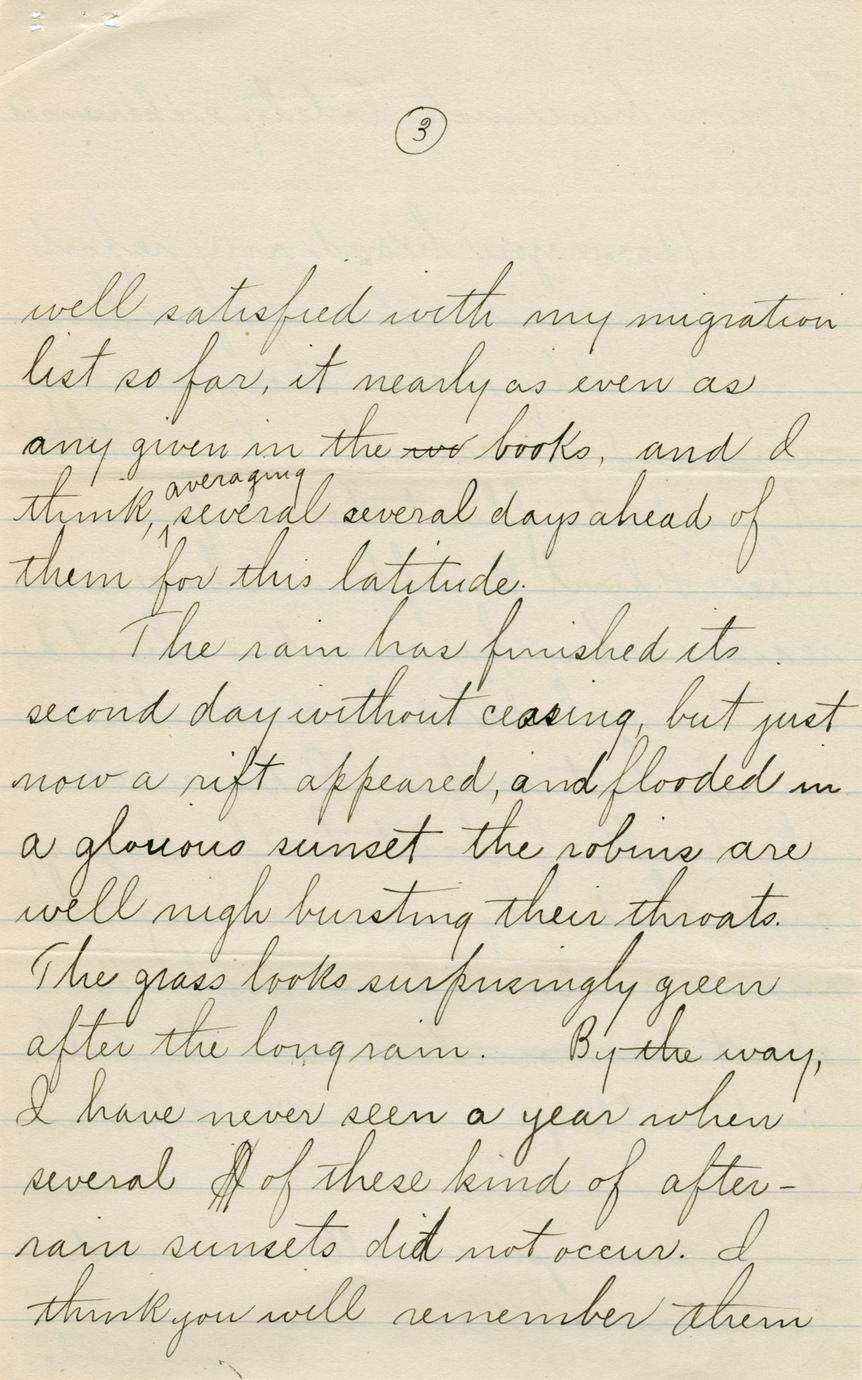 3
well satisfied with my migration
list so far, it nearly as even as
any given in the books, and I
think, averaging several several days ahead of
them for this latitude.
The rain has finished its
second day without ceasing, but just
now a rift appeared, and flooded in
a glorious sunset the robins are
well nigh bursting their throats.
The grass looks surprisingly green
after the long rain. By the way,
I have never seen a year when
several of these kind of after-
rain sunsets did not occur. I
think you will remember them